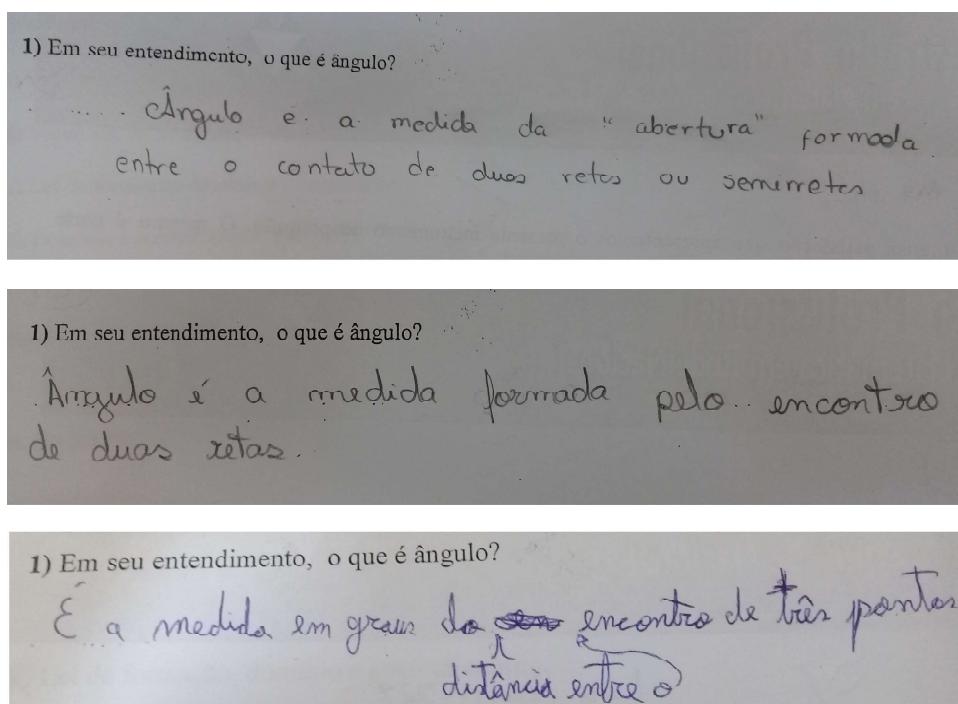 1) Em seu entendimento, o que é ângulo?
Ângulo e a medida da "abertura" formada
entre o contato de duas retas ou semirretas
1) Em seu entendimento, o que é ângulo?
Ângulo é a medida formada pelo encontro
de duas retas.
1) Em seu entendimento, o que é ângulo?
É a medida em graus da encontro de três pontos
distância entre o